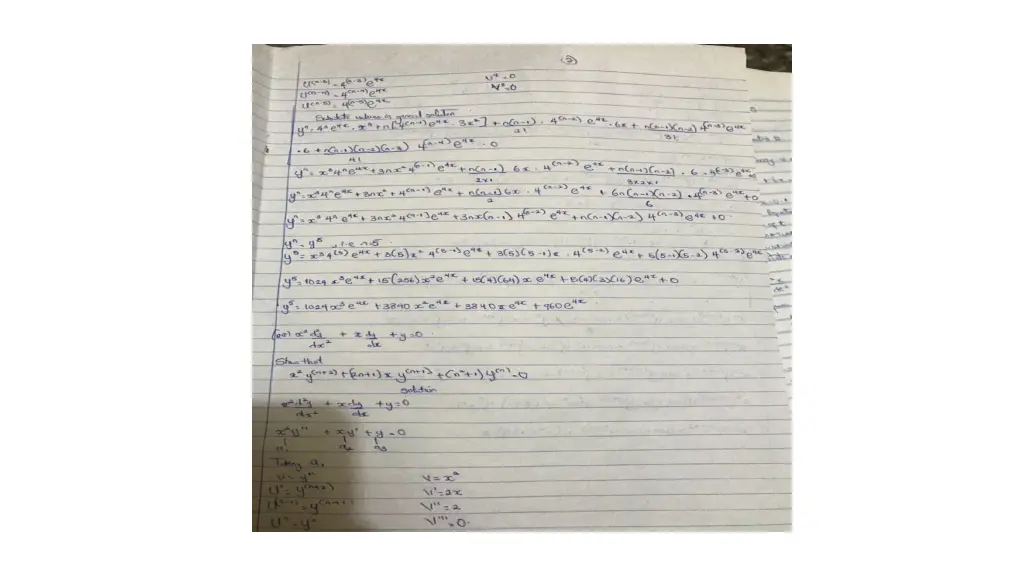 (2)
U⁽ⁿ⁻³⁾ = 4⁽ⁿ⁻³⁾e⁴ˣ V⁴ = 0
U⁽ⁿ⁻⁴⁾ = 4⁽ⁿ⁻⁴⁾e⁴ˣ V⁵ = 0
U⁽ⁿ⁻⁵⁾ = 4⁽ⁿ⁻⁵⁾e⁴ˣ
Substitute values in general solution
yⁿ = 4ⁿe⁴ˣ · x³ + n[4⁽ⁿ⁻¹⁾e⁴ˣ · 3x²] + n(n-1)/2! · 4⁽ⁿ⁻²⁾e⁴ˣ · 6x + n(n-1)(n-2)/3! 4⁽ⁿ⁻³⁾e⁴ˣ
· 6 + n(n-1)(n-2)(n-3)/4! 4⁽ⁿ⁻⁴⁾e⁴ˣ · 0
yⁿ = x³4ⁿe⁴ˣ + 3nx²4⁽ⁿ⁻¹⁾e⁴ˣ + n(n-1)/2x1 6x · 4⁽ⁿ⁻²⁾e⁴ˣ + n(n-1)(n-2)/3x2x1 · 6 · 4⁽ⁿ⁻³⁾e⁴ˣ
yⁿ = x³4ⁿe⁴ˣ + 3nx² + 4⁽ⁿ⁻¹⁾e⁴ˣ + n(n-1)6x/2 · 4⁽ⁿ⁻²⁾e⁴ˣ + 6n(n-1)(n-2)/6 · 4⁽ⁿ⁻³⁾e⁴ˣ + 0
yⁿ = x³4ⁿe⁴ˣ + 3nx²4⁽ⁿ⁻¹⁾e⁴ˣ + 3nx(n-1)4⁽ⁿ⁻²⁾e⁴ˣ + n(n-1)(n-2)4⁽ⁿ⁻³⁾e⁴ˣ + 0
yⁿ = y⁵ i.e n=5
y⁵ = x³4⁽⁵⁾e⁴ˣ + 3(5)x²4⁽⁵⁻¹⁾e⁴ˣ + 3(5)(5-1)x · 4⁽⁵⁻²⁾e⁴ˣ + 5(5-1)(5-2)4⁽⁵⁻³⁾e⁴ˣ
y⁵ = 1024x³e⁴ˣ + 15(256)x²e⁴ˣ + 15(4)(64)xe⁴ˣ + 5(4)(3)(16)e⁴ˣ + 0
y⁵ = 1024x³e⁴ˣ + 3840x²e⁴ˣ + 3840xe⁴ˣ + 960e⁴ˣ
x²d²y/dx² + xdy/dx + y = 0
Show that
x²y⁽ⁿ⁺²⁾ + (2n+1)xy⁽ⁿ⁺¹⁾ + (n²+1)y⁽ⁿ⁾ = 0
Solution
x²d²y/dx² + xdy/dx + y = 0
x²y'' + xy' + y = 0
a₁ a₂ a₃
Taking a₁
U = y'' V = x²
Uⁿ = y⁽ⁿ⁺²⁾ V' = 2x
Uⁿ⁻¹ = y⁽ⁿ⁺¹⁾ V'' = 2
Uⁿ = yⁿ V''' = 0